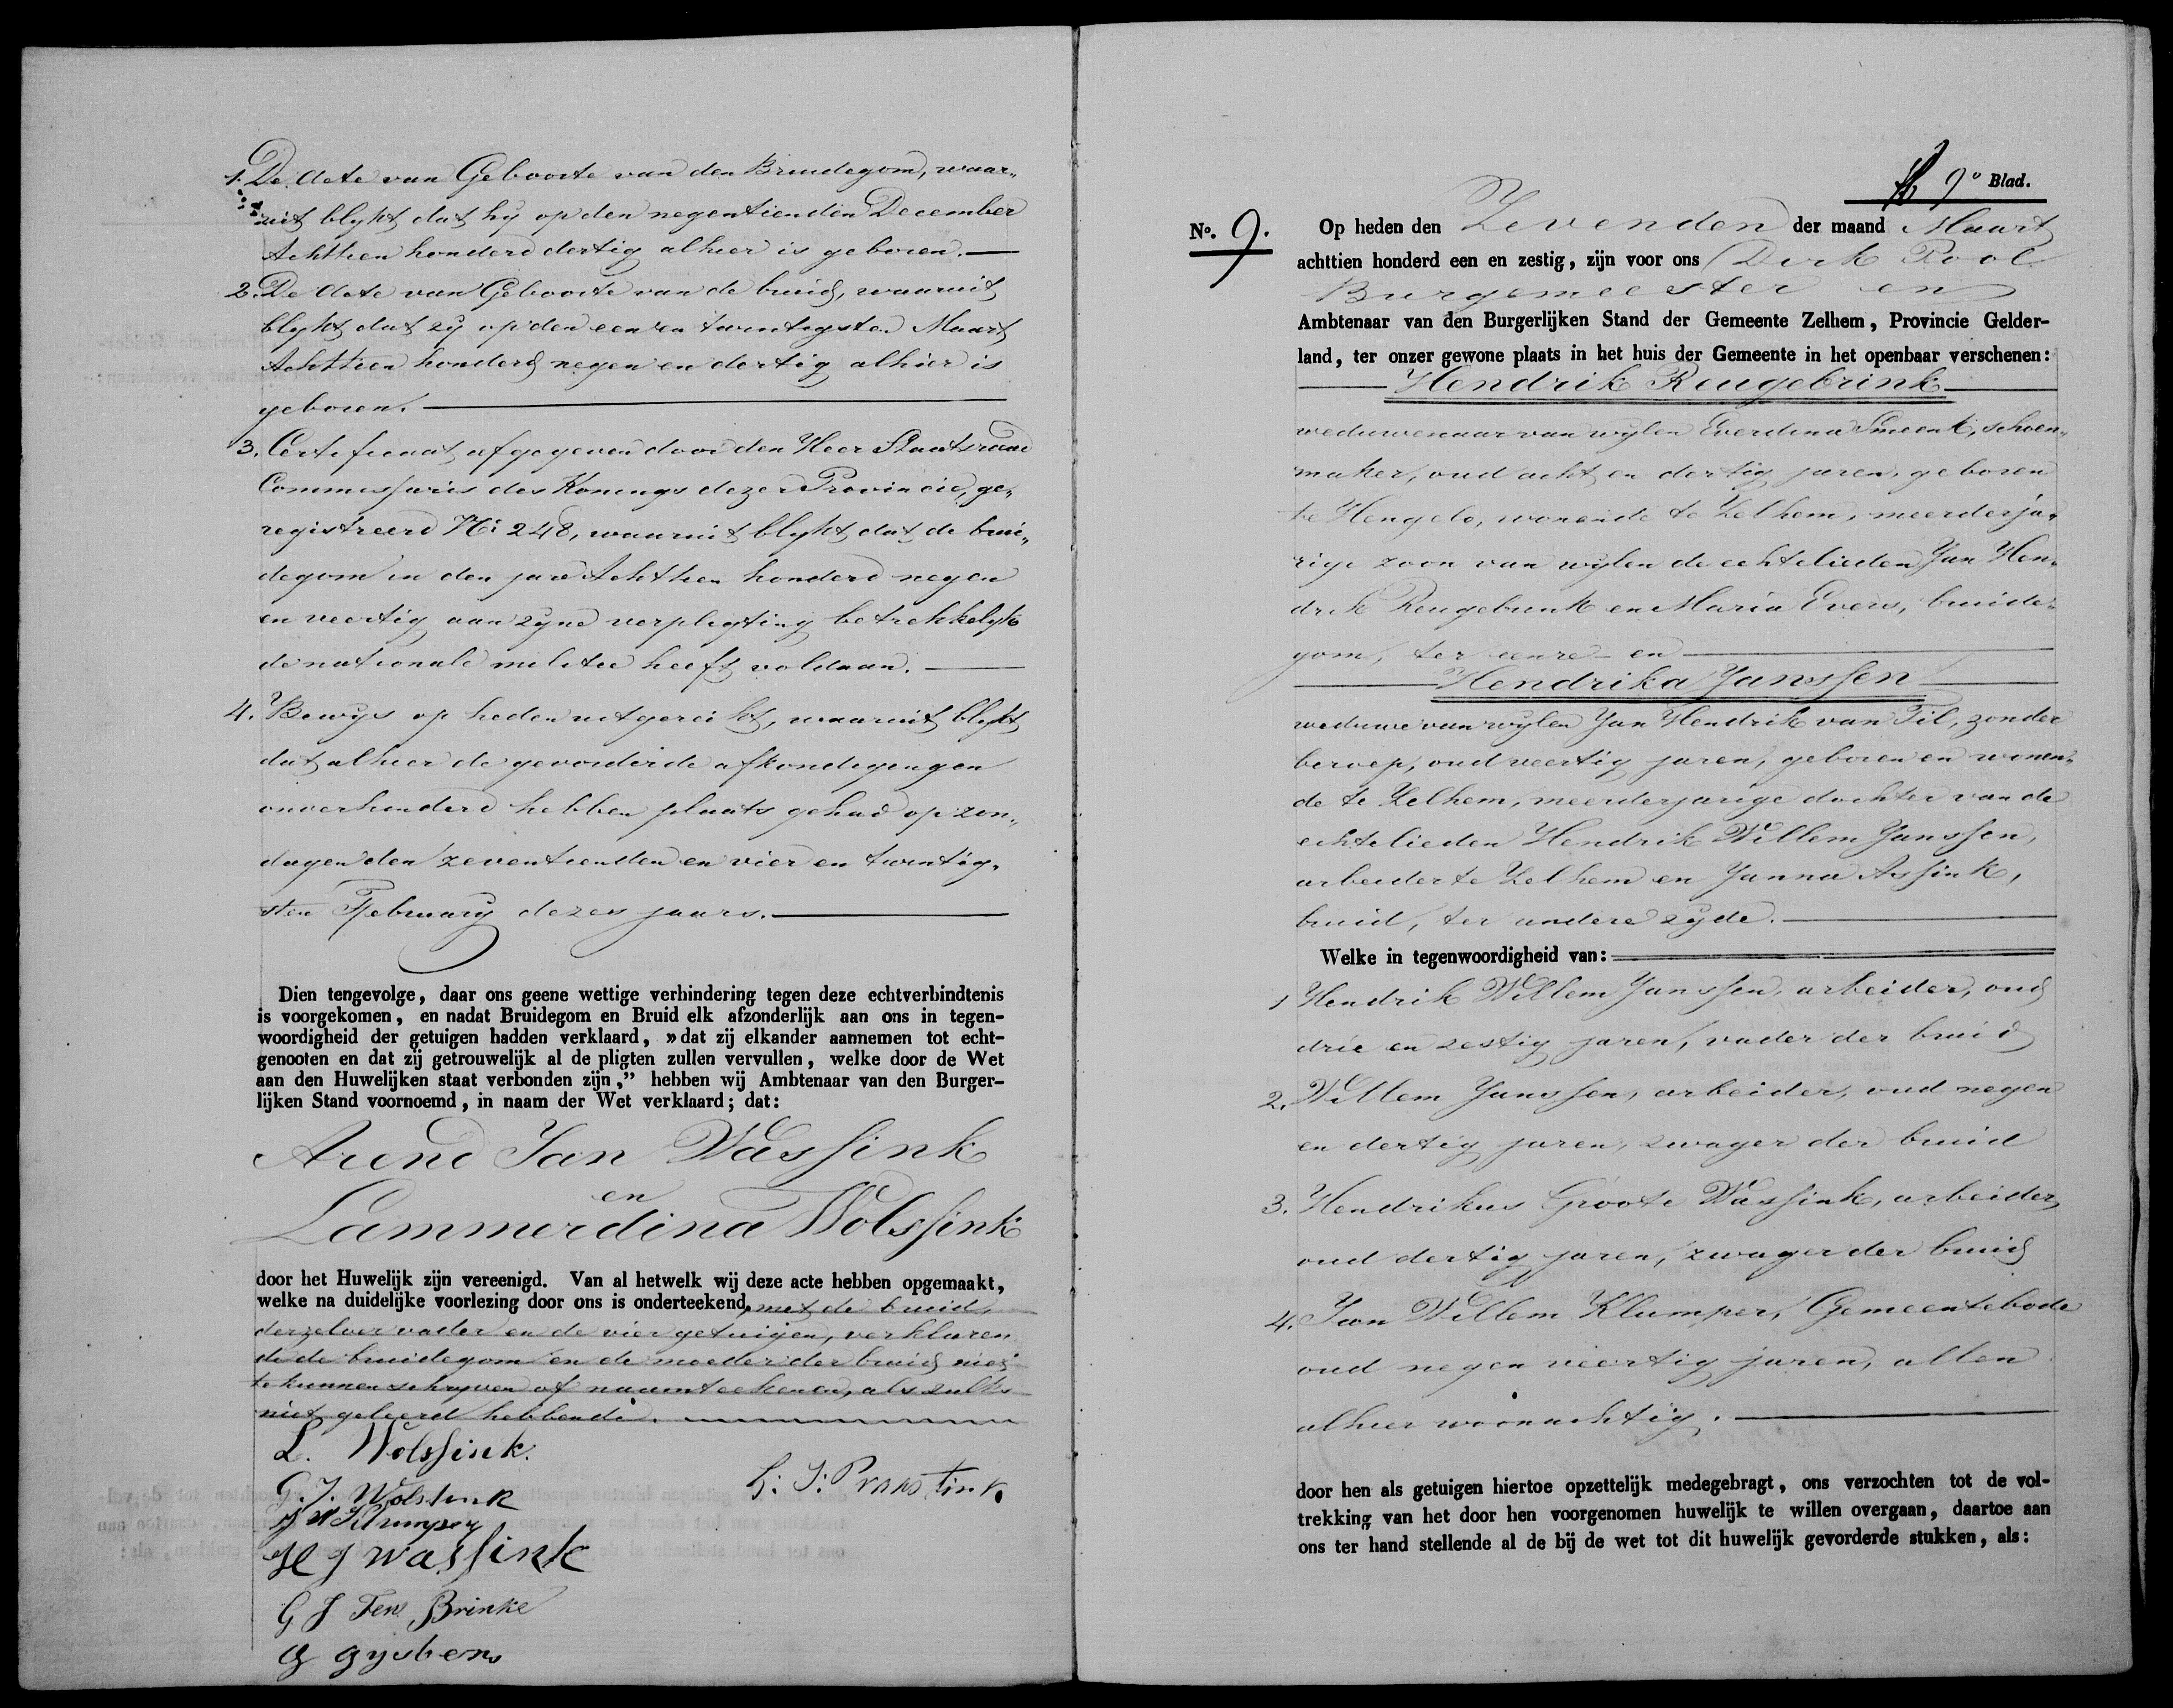 1. De Acte van Geboorte van den Bruidegom, waar„
uit blykt dat hy op den negentienden December
Achttien honderd dertig alhier is geboren.
2. De Acte van Geboorte van de bruid, waaruit
blykt dat zy op den een en twintigsten Maart
Achttien honderd negen en dertig alhier is
geboren.
3. Certificaat afgegeven door den Heer Staatsraad
Commissaris des Konings dezer Provincie, ge„
registreerd No 248, waaruit blykt dat de brui„
degom in den jare Achttien honderd negen
en veertig aan zyne verpligting betrekkelyk
de nationale militie heeft voldaan.
4. Bewys op heden uitgereikt, waaruit blykt
dat alhier de gevorderde afkondigingen
onverhinderd hebben plaats gehad op zon„
dagen den zeventienden en vier en twintig„
sten February dezes jaars.
Dien tengevolge, daar ons geene wettige verhindering tegen deze echtverbindtenis
is voorgekomen, en nadat Bruidegom en Bruid elk afzonderlijk aan ons in tegen-
woordigheid der getuigen hadden verklaard, »dat zij elkander aannemen tot echt-
genooten en dat zij getrouwelijk al de pligten zullen vervullen, welke door de Wet
aan den Huwelijken staat verbonden zijn,” hebben wij Ambtenaar van den Burger-
lijken Stand voornoemd, in naam der Wet verklaard; dat:
Arend Jan Wassink
en
Lammerdina Wolssink
door het Huwelijk zijn vereenigd. Van al hetwelk wij deze acte hebben opgemaakt,
welke na duidelijke voorlezing door ons is onderteekend, met de bruid,
derzelver vader en de vier getuigen, verklaren„
de de bruidegom en de moeder der bruid niet
te kunnen schryven of naamteekenen, als zulks
niet geleerd hebbende.
L. Wolssink.
G. J. Wolssink
J W Klumper
H J Wassink
G J Ten Brinke
G Gysbers
9e Blad.
No. 9.
Op heden den Zevenden der maand Maart
achttien honderd een en zestig, zijn voor ons Dirk Pool
Burgemeester en
Ambtenaar van den Burgerlijken Stand der Gemeente Zelhem, Provincie Gelder-
land, ter onzer gewone plaats in het huis der Gemeente in het openbaar verschenen:
Hendrik Reugebrink
weduwenaar van wylen Everdina Smeenk, schoen„
maker, oud acht en dertig jaren, geboren
te Hengelo, wonende te Zelhem, meerderja„
rige zoon van wylen de echtelieden Jan Hen„
drik Reugebrink en Maria Evers, bruide„
gom, ter eenre en
Hendrika Janssen
weduwe van wylen Jan Hendrik van Til, zonder
beroep, oud veertig jaren, geboren en wonen„
de te Zelhem, meerderjarige dochter van de
echtelieden Hendrik Willem Janssen,
arbeider te Zelhem en Janna Assink,
bruid, ter andere zyde.
Welke in tegenwoordigheid van:
1 Hendrik Willem Janssen, arbeider, oud
drie en zestig jaren, vader der bruid
2. Willem Janssen, arbeider, oud negen
en dertig jaren, zwager der bruid
3. Hendrikus Groote Wassink, arbeider,
oud dertig jaren, zwager der bruid
4. Jan Willem Klumper, Gemeentebode
oud negen veertig jaren, allen
alhier woonachtig.
door hen als getuigen hiertoe opzettelijk medegebragt, ons verzochten tot de vol-
trekking van het door hen voorgenomen huwelijk te willen overgaan, daartoe aan
ons ter hand stellende al de bij de wet tot dit huwelijk gevorderde stukken, als: